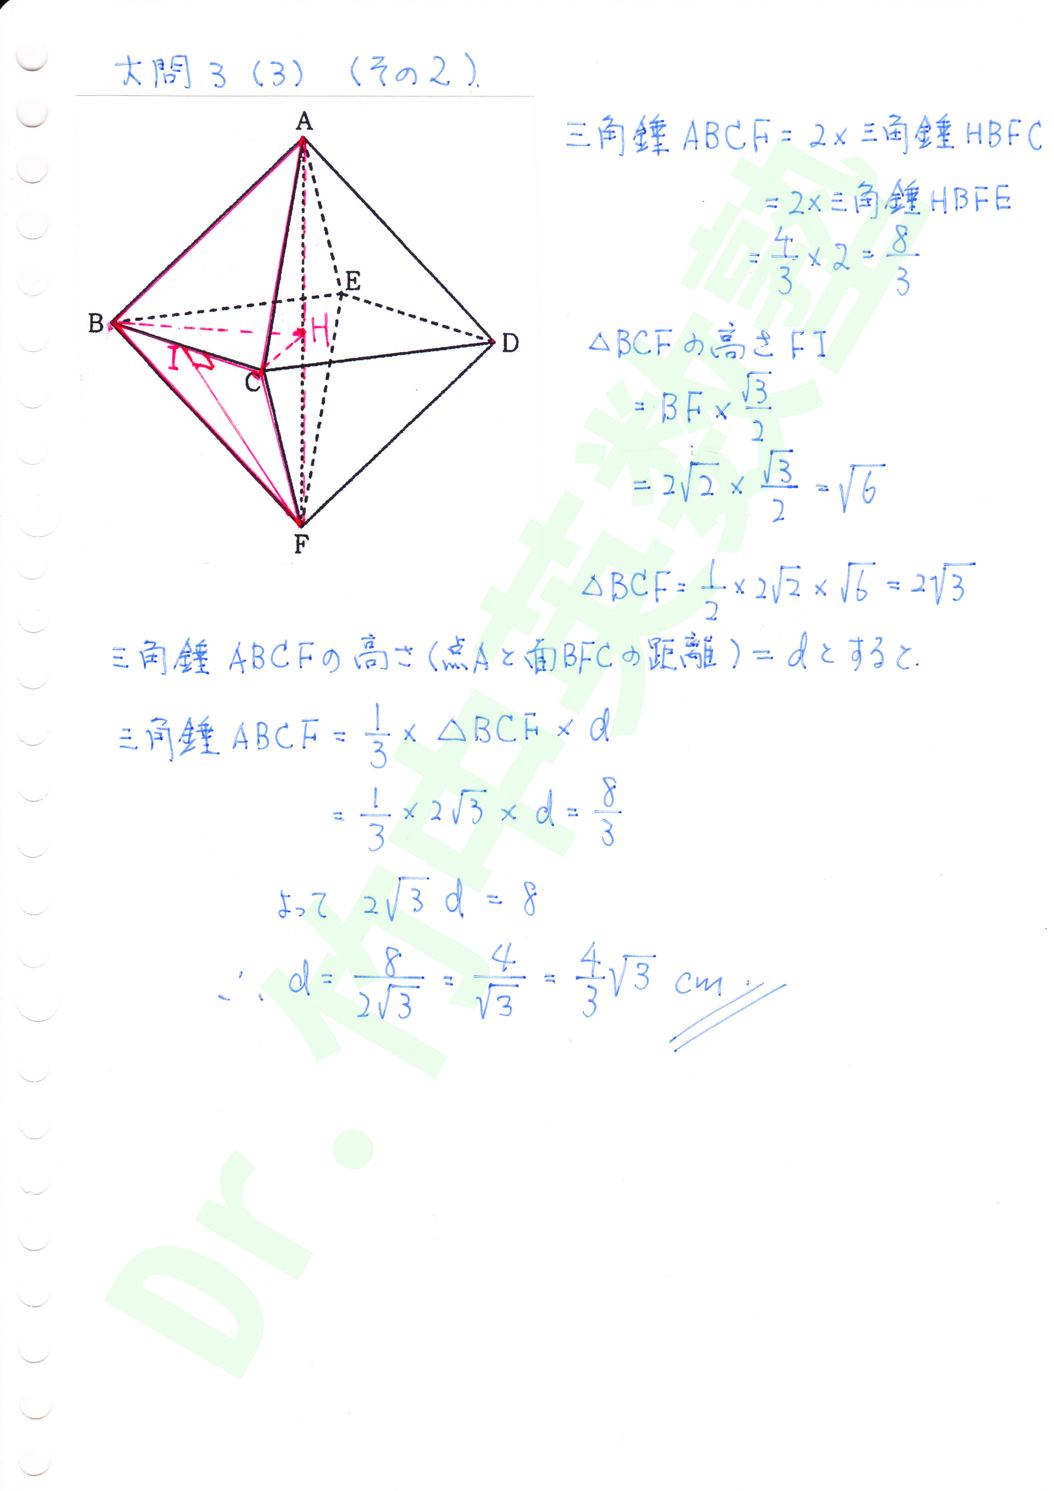 大問3(3) (その2).
A
B
C
D
E
F
H
I
三角錘ABCF = 2×三角錘HBFC
= 2×三角錘HBFE
= 4/3 × 2 = 8/3
△BCFの高さFI
= BF × √3/2
= 2√2 × √3/2 = √6
△BCF = 1/2 × 2√2 × √6 = 2√3
三角錘ABCFの高さ(点Aと面BFCの距離) = dとすると.
三角錘ABCF = 1/3 × △BCF × d
= 1/3 × 2√3 × d = 8/3
よって 2√3 d = 8
∴ d = 8/2√3 = 4/√3 = 4/3 √3 cm.
Dr.竹中英数塾